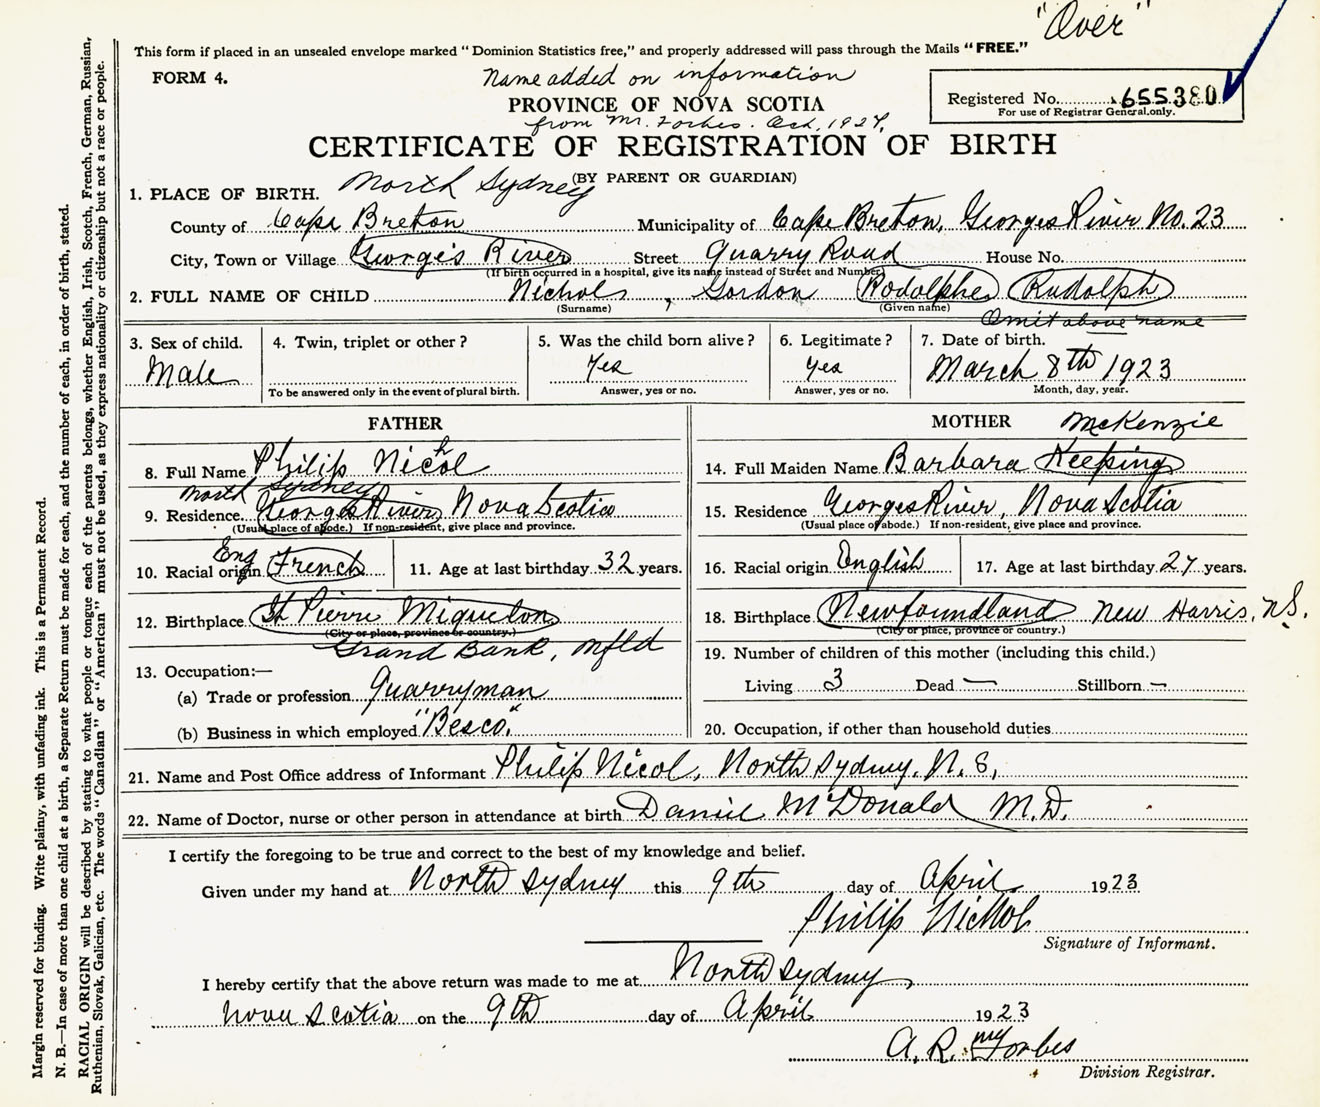 "Over"
This form if placed in an unsealed envelope marked "Dominion Statistics free," and properly addressed will pass through the Mails "FREE."
FORM 4.
Name added on information
PROVINCE OF NOVA SCOTIA
from Mr. Forbes. Oct, 1927,
Registered No. 655380
For use of Registrar General only.
CERTIFICATE OF REGISTRATION OF BIRTH
(BY PARENT OR GUARDIAN)
1. PLACE OF BIRTH. North Sydney
County of Cape Breton Municipality of Cape Breton, Georges River No. 23
City, Town or Village George's River Street Quarry Road House No.
(If birth occurred in a hospital, give its name instead of Street and Number)
2. FULL NAME OF CHILD Nichols, Gordon Rodolphe Rudolph
(Surname) (Given name)
Omit above name
3. Sex of child. 4. Twin, triplet or other? 5. Was the child born alive? 6. Legitimate? 7. Date of birth.
Male Yes Yes March 8th 1923
To be answered only in the event of plural birth. Answer, yes or no. Answer, yes or no. Month, day, year.
FATHER MOTHER McKenzie
8. Full Name Philip Nichol 14. Full Maiden Name Barbara Keeping
North Sydney
9. Residence Georges River, Nova Scotia 15. Residence Georges River, Nova Scotia
(Usual place of abode.) If non-resident, give place and province. (Usual place of abode.) If non-resident, give place and province.
Eng
10. Racial origin French 11. Age at last birthday 32 years. 16. Racial origin English 17. Age at last birthday 27 years.
12. Birthplace St Pierre Miquelon 18. Birthplace Newfoundland New Harris, N.S.
(City or place, province or country.) (City or place, province or country.)
Grand Bank, Nfld
13. Occupation:— 19. Number of children of this mother (including this child.)
(a) Trade or profession Quarryman Living 3 Dead — Stillborn —
(b) Business in which employed "Besco." 20. Occupation, if other than household duties
21. Name and Post Office address of Informant Philip Nicol, North Sydney, N.S,
22. Name of Doctor, nurse or other person in attendance at birth Daniel McDonald M.D.
I certify the foregoing to be true and correct to the best of my knowledge and belief.
Given under my hand at North Sydney this 9th day of April 1923
Philip Nichol
Signature of Informant.
I hereby certify that the above return was made to me at North Sydney,
Nova Scotia on the 9th day of April 1923
A. R. Forbes
Division Registrar.
Margin reserved for binding. Write plainly, with unfading ink. This is a Permanent Record.
N. B.—In case of more than one child at a birth, a Separate Return must be made for each, and the number of each, in order of birth, stated.
RACIAL ORIGIN will be described by stating to what people or tongue each of the parents belongs, whether English, Irish, Scotch, French, German, Russian,
Ruthenian, Slovak, Galician, etc. The words "Canadian" or "American" must not be used, as they express nationality or citizenship but not a race or people.